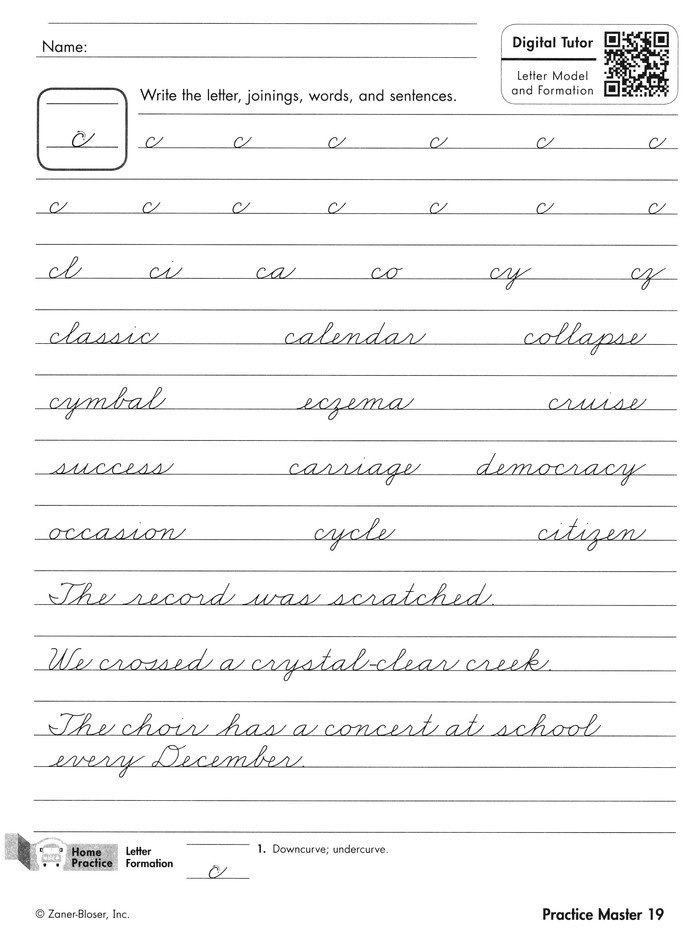 Name:
Digital Tutor
Letter Model
and Formation
Write the letter, joinings, words, and sentences.
c c c c c c c
c c c c c c c
cl ci ca co cy cz
classic calendar collapse
cymbal eczema cruise
success carriage democracy
occasion cycle citizen
The record was scratched.
We crossed a crystal-clear creek.
The choir has a concert at school
every December.
Home
Practice
Letter
Formation
c
1. Downcurve; undercurve.
© Zaner-Bloser, Inc.
Practice Master 19